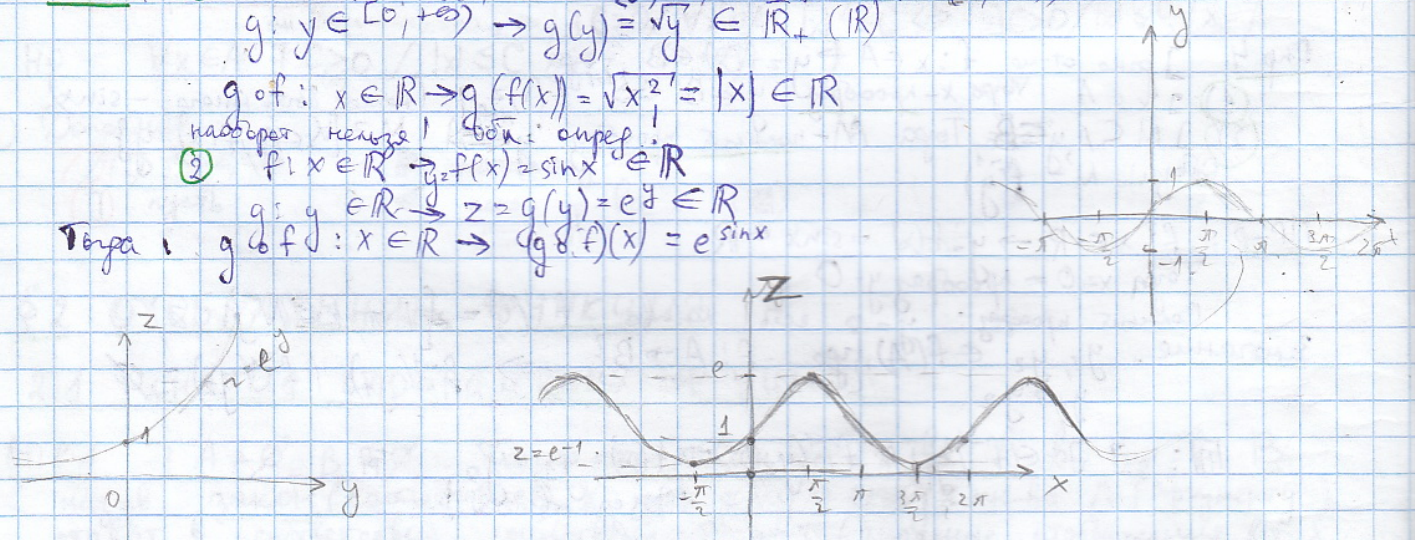 g: y ∈ [0, +∞) → g(y) = √y ∈ ℝ₊ (ℝ)
g∘f : x ∈ ℝ → g(f(x)) = √x² = |x| ∈ ℝ
наоборот нельзя! обл. опред!
② f: x ∈ ℝ → y=f(x) = sinx ∈ ℝ
g: y ∈ ℝ → z = g(y) = e^y ∈ ℝ
Тогда : g∘f : x ∈ ℝ → (g∘f)(x) = e^sinx
y
1
-π -π/2 π/2 π 3π/2 2π x
-1
z
z=e^y
1
0 y
z
e
1
z=e^-1
-π/2 π/2 π 3π/2 2π x